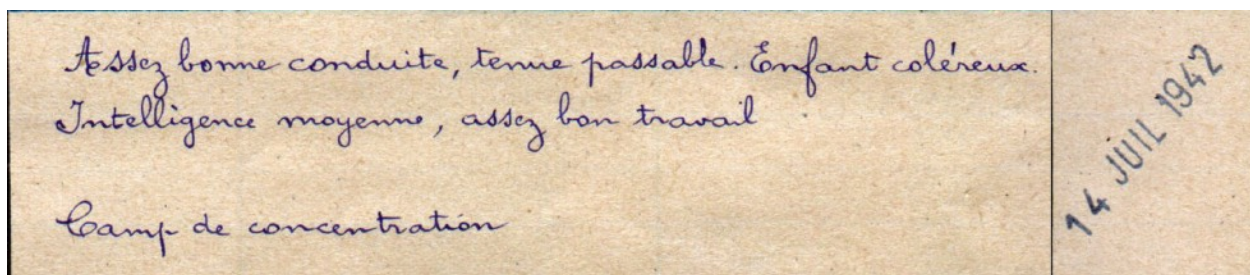 Assez bonne conduite, tenue passable. Enfant coléreux.
Intelligence moyenne, assez bon travail
Camp de concentration
14 JUIL 1942